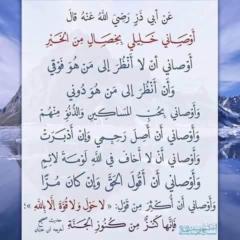 عَنْ أَبِي ذَرٍّ رَضِيَ اللَّهُ عَنْهُ قَالَ
أَوْصَانِي خَلِيلِي بِخِصَالٍ مِنَ الْخَيْرِ
أَوْصَانِي أَنْ لَا أَنْظُرَ إِلَى مَنْ هُوَ فَوْقِي
وَأَنْ أَنْظُرَ إِلَى مَنْ هُوَ دُونِي
وَأَوْصَانِي بِحُبِّ الْمَسَاكِينِ وَالدُّنُوِّ مِنْهُمْ
وَأَوْصَانِي أَنْ أَصِلَ رَحِمِي وَإِنْ أَدْبَرَتْ
وَأَوْصَانِي أَنْ لَا أَخَافَ فِي اللَّهِ لَوْمَةَ لَائِمٍ
وَأَوْصَانِي أَنْ أَقُولَ الْحَقَّ وَإِنْ كَانَ مُرًّا
وَأَوْصَانِي أَنْ أُكْثِرَ مِنْ قَوْلِ: «لَا حَوْلَ وَلَا قُوَّةَ إِلَّا بِاللَّهِ»؛
فَإِنَّهَا كَنْزٌ مِنْ كُنُوزِ الْجَنَّةِ